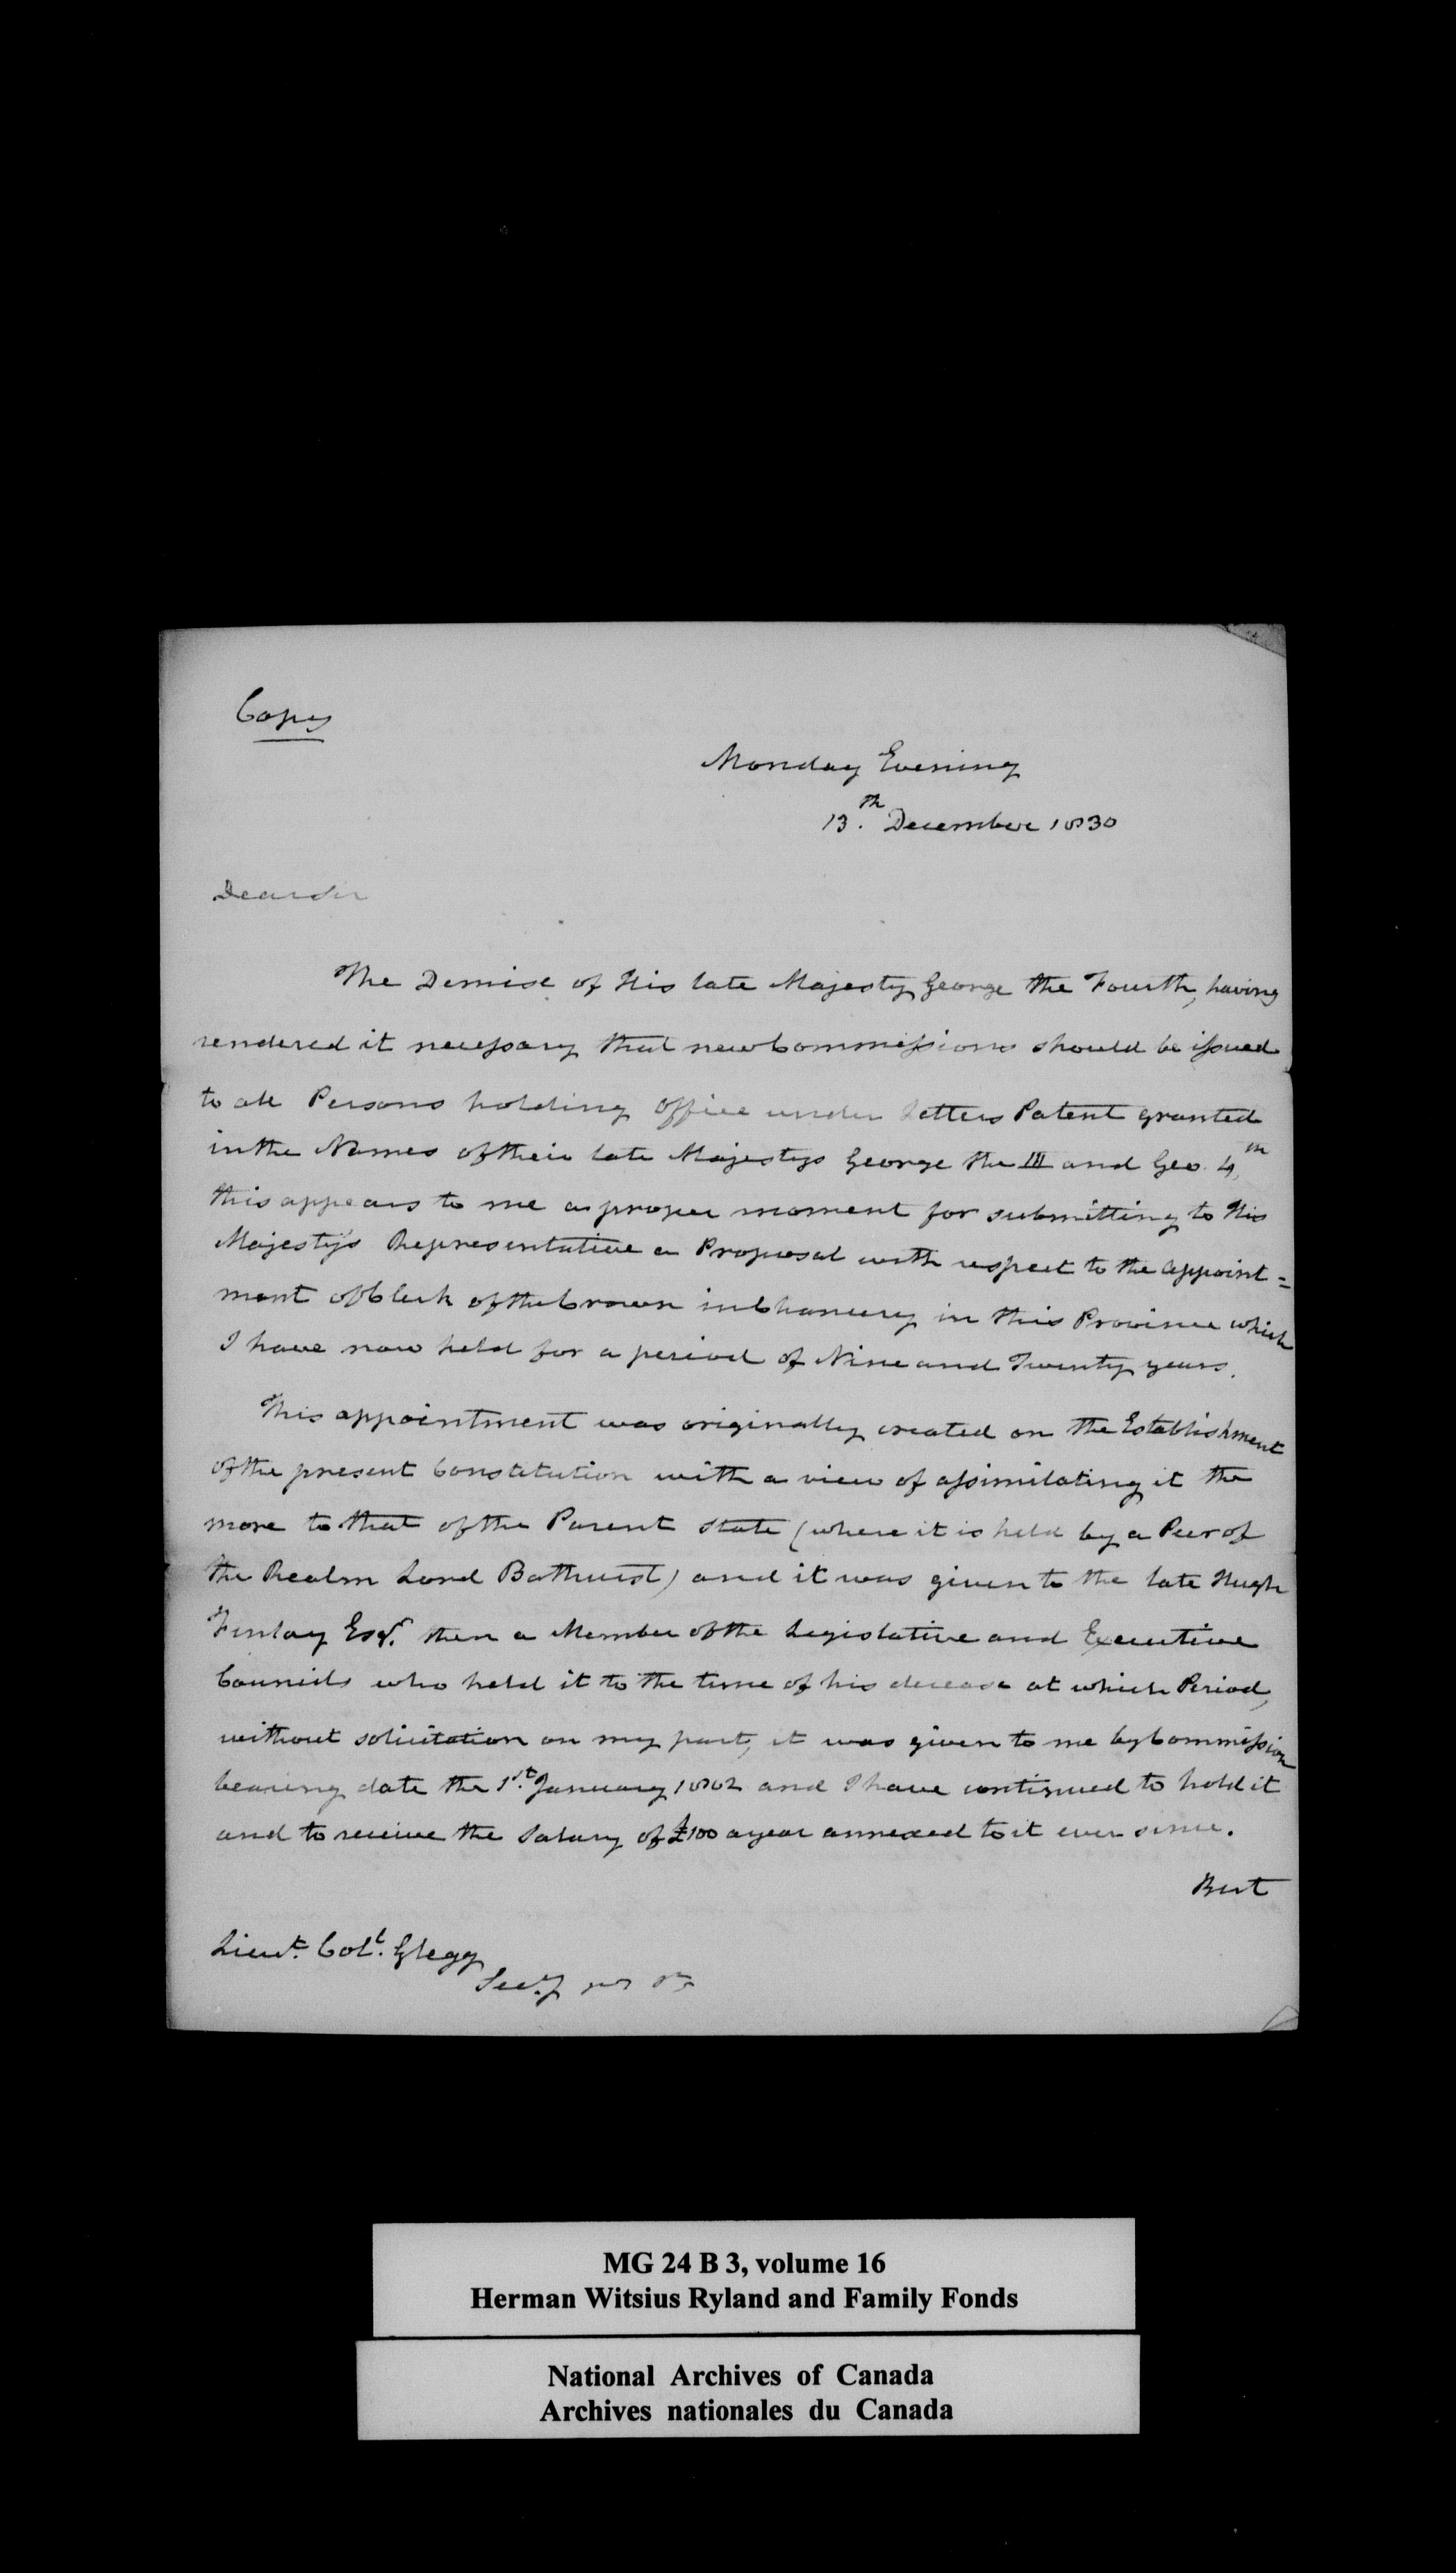 Copy
Monday Evening
13.th December 1830
Dear Sir
The Demise of His late Majesty George the Fourth, having
rendered it necessary that new Commissions should be issued
to all Persons holding Office under Letters Patent granted
in the Names of their late Majestys George the III and Geo. 4.th
this appears to me a proper moment for submitting to His
Majesty's Representative a Proposal with respect to the appoint=
ment of Clerk of the Crown in Chancery in this Province which
I have now held for a period of Nine and Twenty years.
This appointment was originally created on the Establishment
of the present Constitution with a view of assimilating it the
more to that of the Parent State (where it is held by a Peer of
the Realm Lord Bathurst) and it was given to the late Hugh
Finlay Esqr. then a Member of the Legislative and Executive
Councils who held it to the time of his decease at which Period,
without solicitation on my part, it was given to me by Commission
bearing date the 1st. January 1802 and I have continued to hold it
and to receive the Salary of £100 a year annexed to it ever since.
But
Lieut. Coll. Glegg
Secy
MG 24 B 3, volume 16
Herman Witsius Ryland and Family Fonds
National Archives of Canada
Archives nationales du Canada